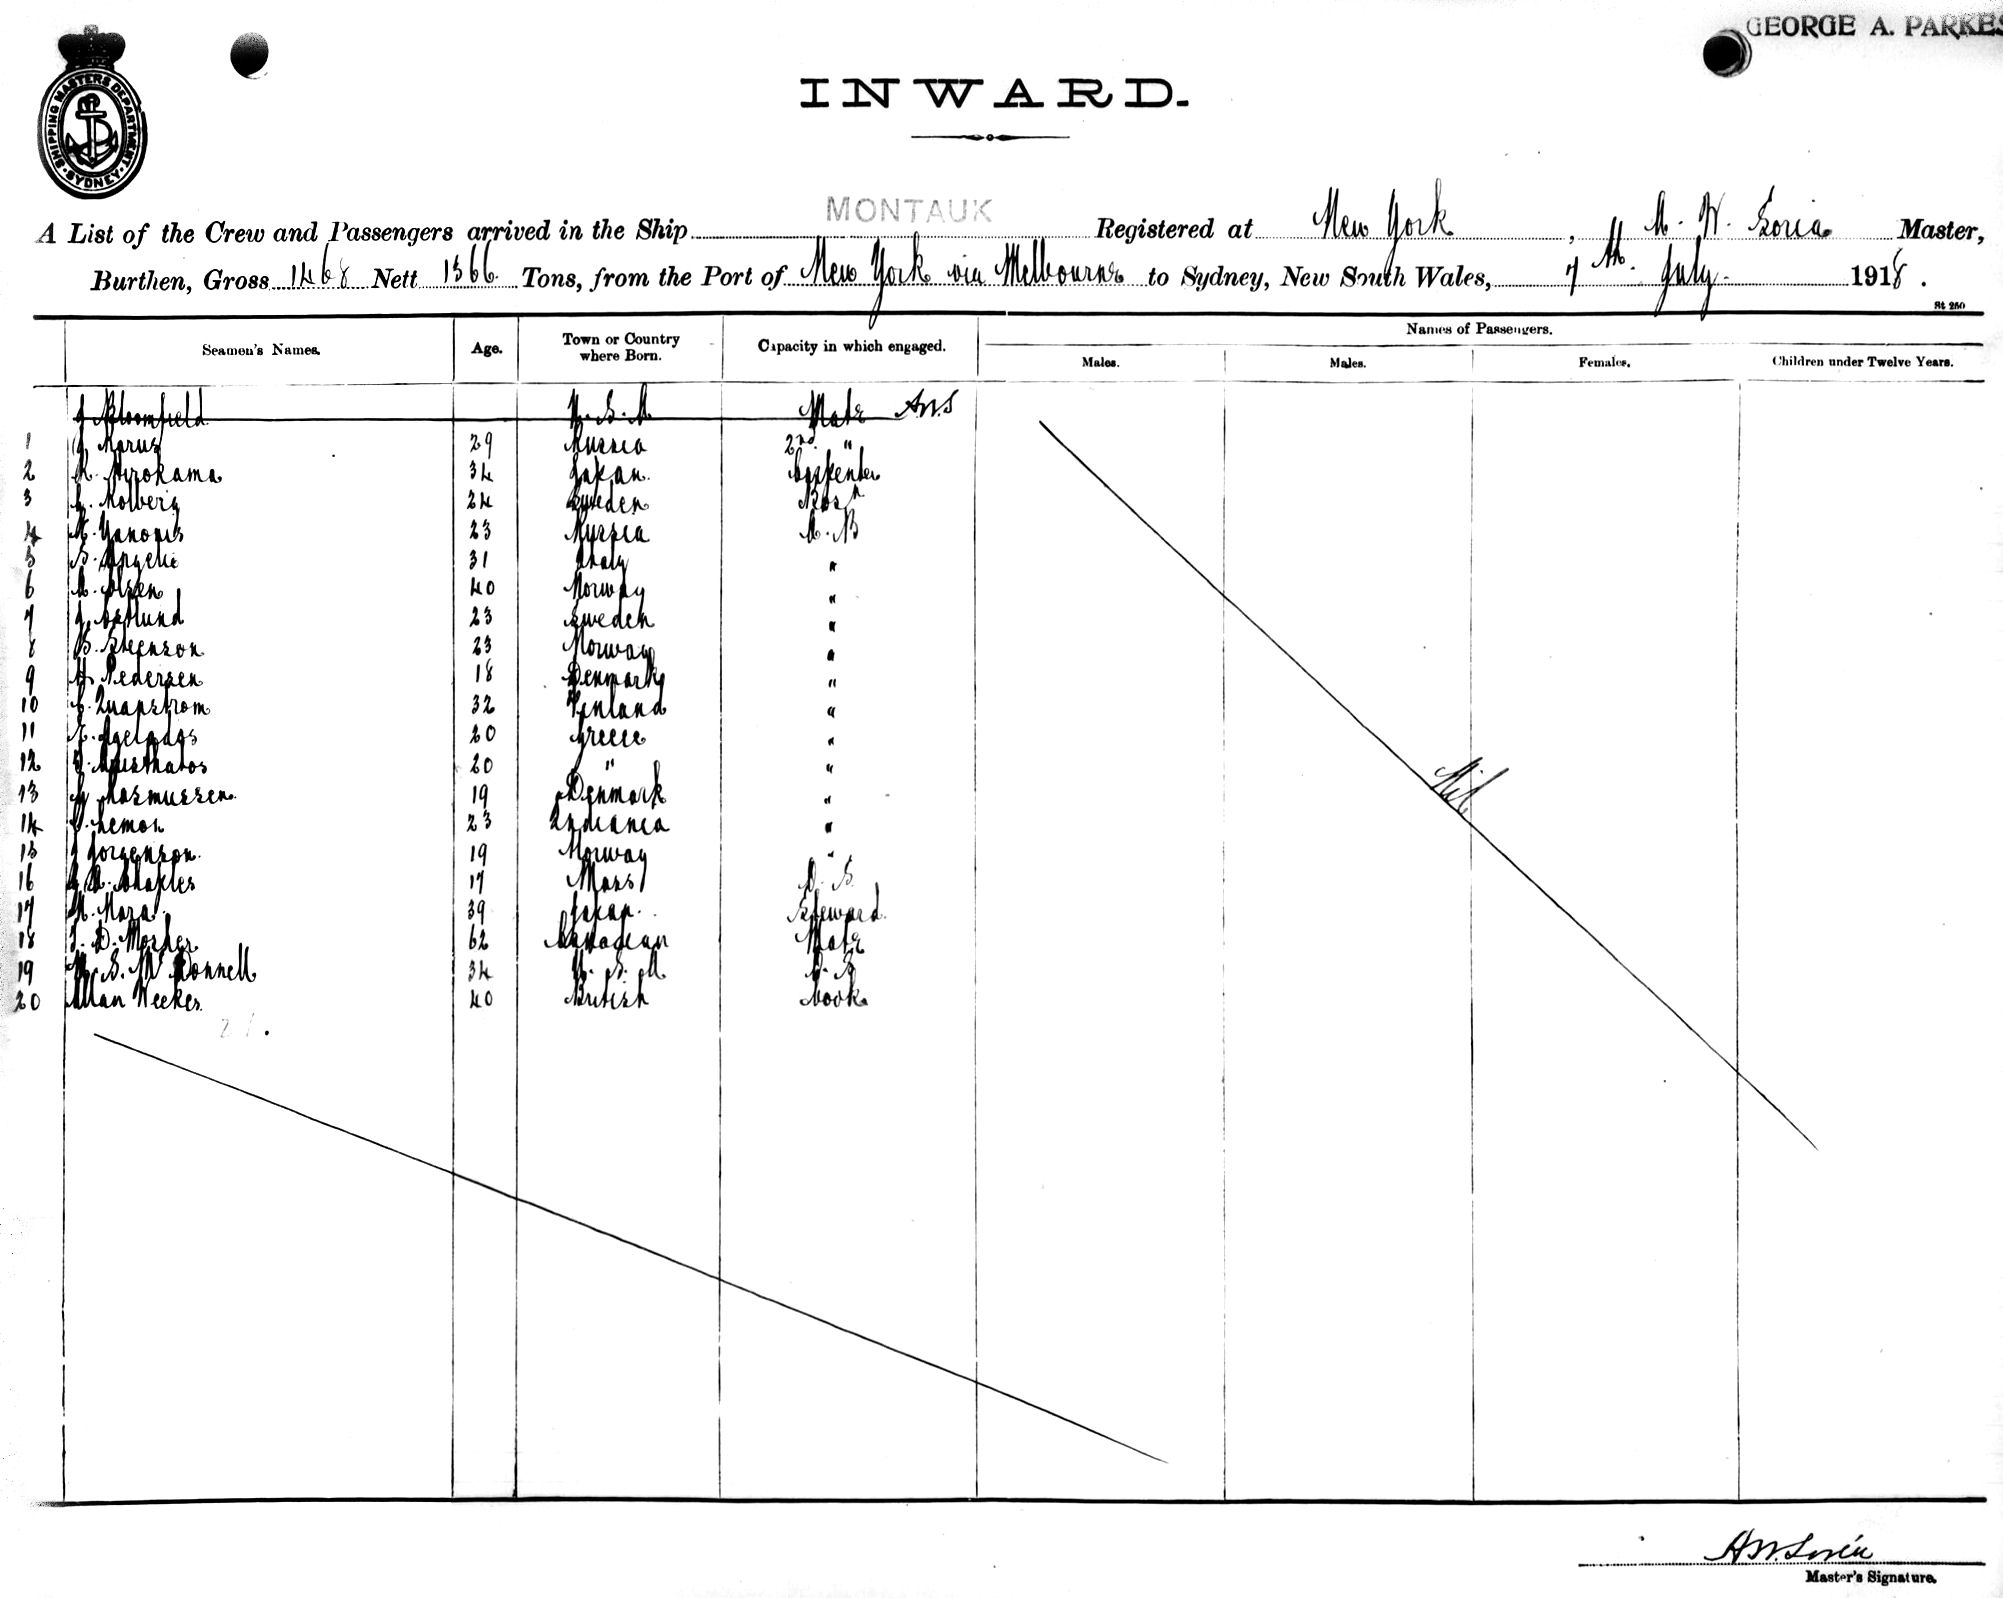 GEORGE A. PARKES
SHIPPING MASTERS DEPARTMENT
SYDNEY
INWARD.
A List of the Crew and Passengers arrived in the Ship MONTAUK Registered at New York, A. W. Soria Master,
Burthen, Gross 1468 Nett 1366 Tons, from the Port of New York via Melbourne to Sydney, New South Wales, 7th July 1918.
St 250
Seamen's Names. Age. Town or Country where Born. Capacity in which engaged. Names of Passengers.
Males. Males. Females. Children under Twelve Years.
J Bloomfield U.S.A Mate AWS
1 J Karus 29 Russia 2nd "
2 K. Hirokama 34 Japan. Carpenter
3 Kolberg 24 Sweden Bosn
4 23 Russia A.B
5 B. Angelie 31 Italy "
6 A. Olsen 40 Norway "
7 J. 23 Sweden "
8 B. Steenson 23 Norway "
9 H. Pedersen 18 Denmark "
10 32 Finland "
11 20 Greece "
12 20 " "
13 Rasmussen 19 Denmark "
14 Lemon 23 Indiania "
15 J Jorgenson 19 Norway "
16 17 Mass O.S
17 39 Japan. Steward
18 D. Mosher 62 Canadian Mate
19 S. McDonnell 34 U.S.A O.S
20 Allan Weekes. 40 British Cook
21.
Nil
A W. Soria
Master's Signature.